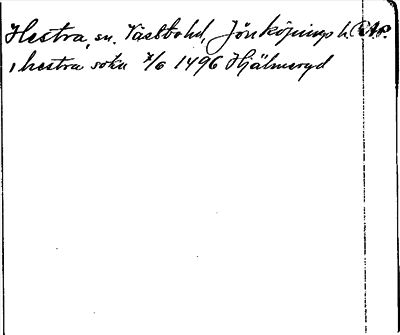 Hestra, sn. Västbo hd, Jönköpings l.
i hestra sokn 7/6 1496 Hjälmeryd